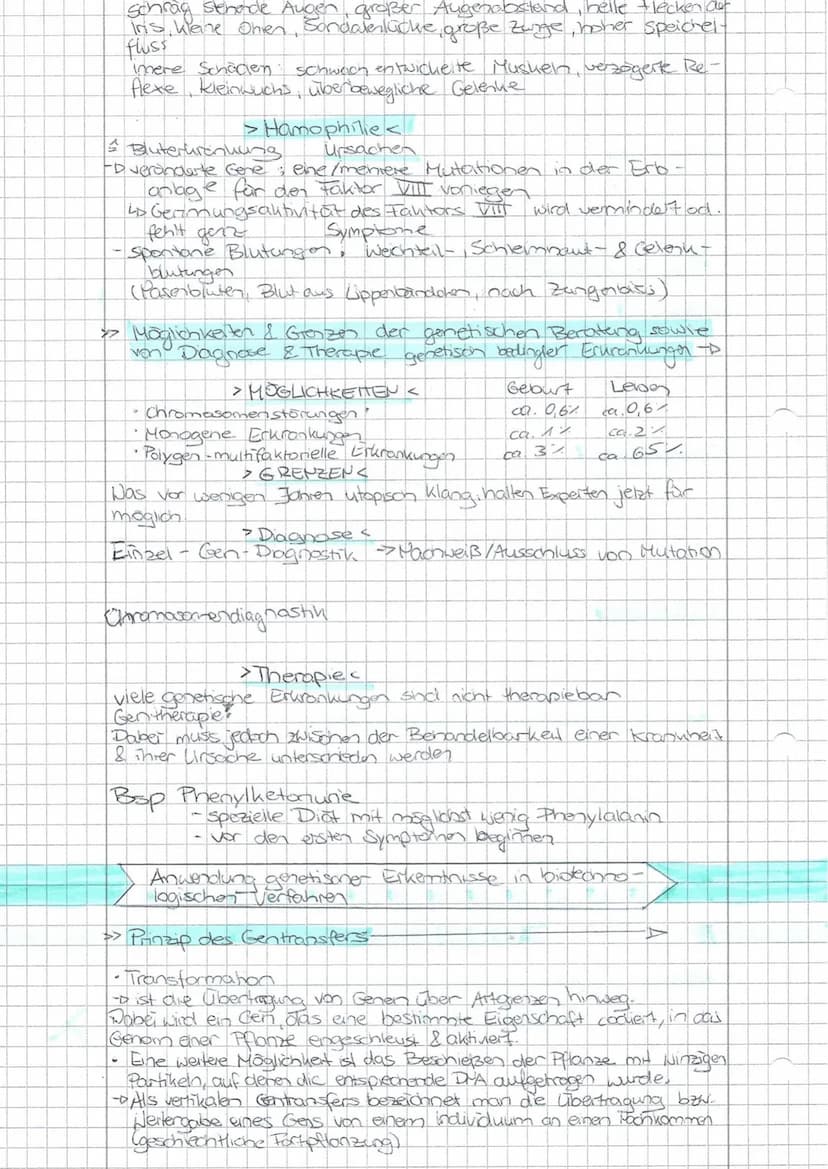 schräg stehende Augen, großer Augenabstand, helle Flecken auf
Iris, kleine Ohren, Sandalenlücke, große Zunge, hoher Speichel-
fluss
innere Schäden: schwach entwickelte Muskeln, verzögerte Re-
flexe, Kleinwuchs, überbewegliche Gelenke
> Hämophilie <
≙ Bluterkrankung Ursachen
→ veränderte Gene; eine/mehrere Mutationen in der Erb-
anlage für den Faktor VIII vorliegen
↳ Gerinnungsaktivität des Faktors VIII wird vermindert od.
fehlt ganz Symptome
- spontane Blutungen, Weichteil-, Schleimhaut- & Gelenk-
blutungen
(Nasenbluten, Blut aus Lippenbändchen, nach Zungenbiss)
>> Möglichkeiten & Grenzen der genetischen Beratung sowie
von Diagnose & Therapie genetisch bedingter Erkrankungen →
> MÖGLICHKEITEN < Geburt Leben
· Chromosomenstörungen ca. 0,6% ca. 0,6%
· Monogene Erkrankungen ca. 1% ca. 2%
· Polygen-multifaktorielle Erkrankungen ca. 3% ca. 65%
> GRENZEN <
Was vor wenigen Jahren utopisch klang, halten Experten jetzt für
möglich
> Diagnose <
Einzel-Gen-Diagnostik → Nachweiß/Ausschluss von Mutation
Chromosomendiagnostik
> Therapie <
viele genetische Erkrankungen sind nicht therapiebar
Gentherapie?
Dabei muss jedoch zwischen der Behandelbarkeit einer Krankheit
& ihrer Ursache unterschieden werden
Bsp Phenylketonurie
- spezielle Diät mit möglichst wenig Phenylalanin
- vor den ersten Symptomen beginnen
Anwendung genetischer Erkenntnisse in biotechno-
logischen Verfahren
>> Prinzip des Gentransfers
· Transformation
→ ist die Übertragung von Genen über Artgrenzen hinweg.
Dabei wird ein Gen, das eine bestimmte Eigenschaft codiert, in das
Genom einer Pflanze eingeschleust & aktiviert.
· Eine weitere Möglichkeit ist das Beschießen der Pflanze mit winzigen
Partikeln, auf denen die entsprechende DNA aufgetragen wurde.
→ Als vertikalen Gentransfers bezeichnet man die Übertragung bzw.
Weitergabe eines Gens von einem Individuum an einen Nachkommen
(geschlechtliche Fortpflanzung)